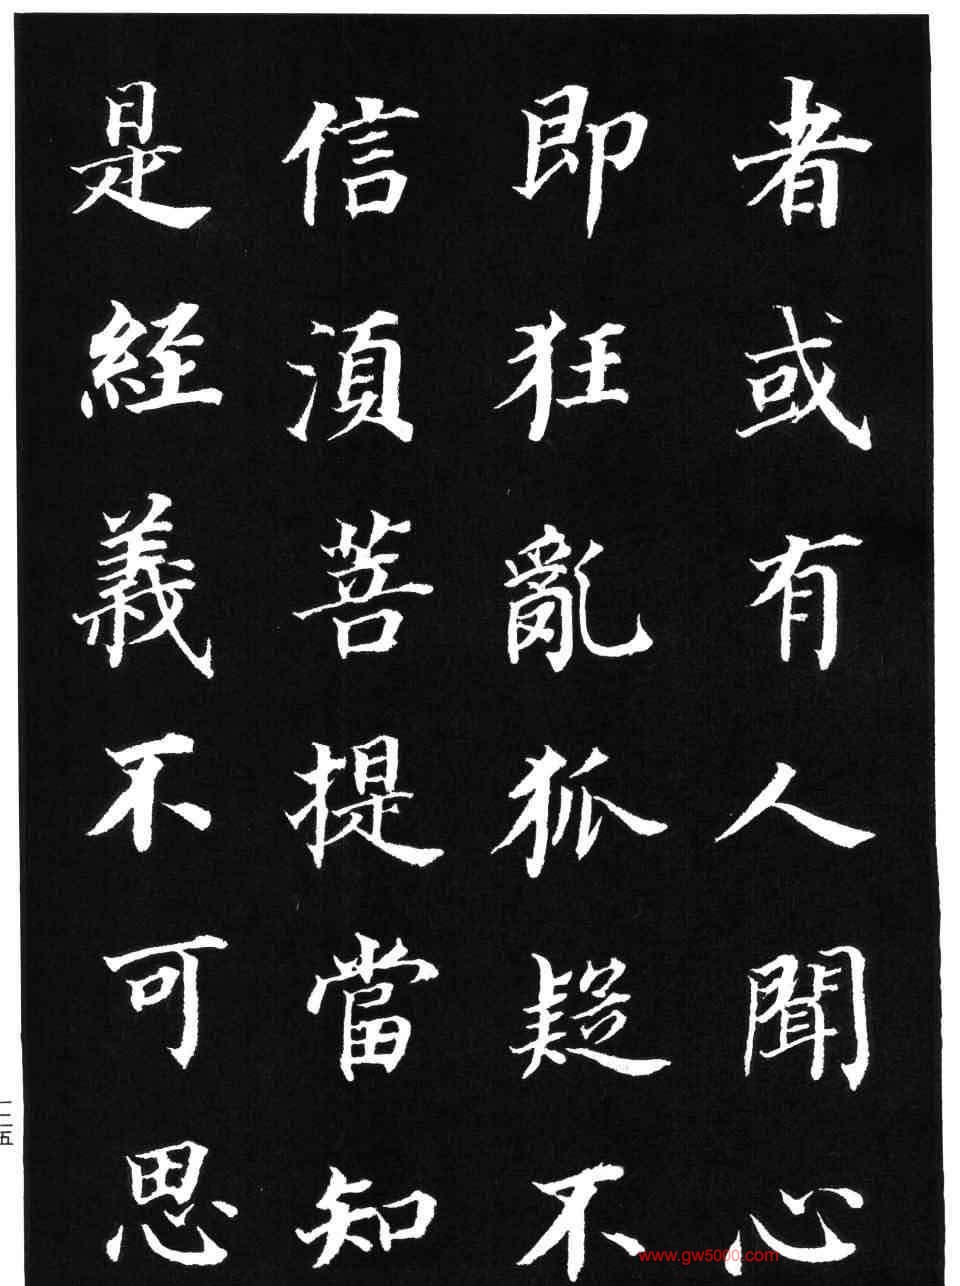 者或有人聞心
即狂亂狐疑不
信須菩提當知
是經義不可思
二二五
www.gw5000.com